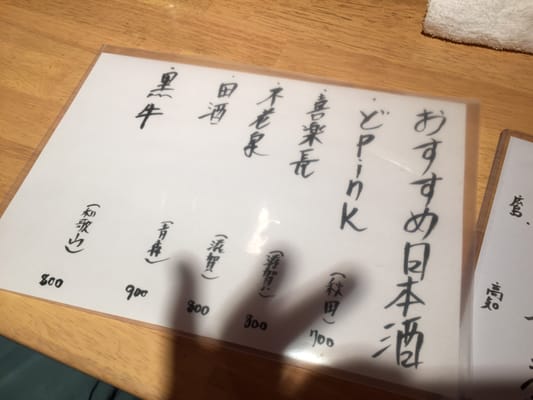 おすすめ日本酒
・どPink （秋田） 700
・喜楽長 （滋賀） 800
・不老泉 （滋賀） 800
・田酒 （青森） 900
・黒牛 （和歌山） 800
高知